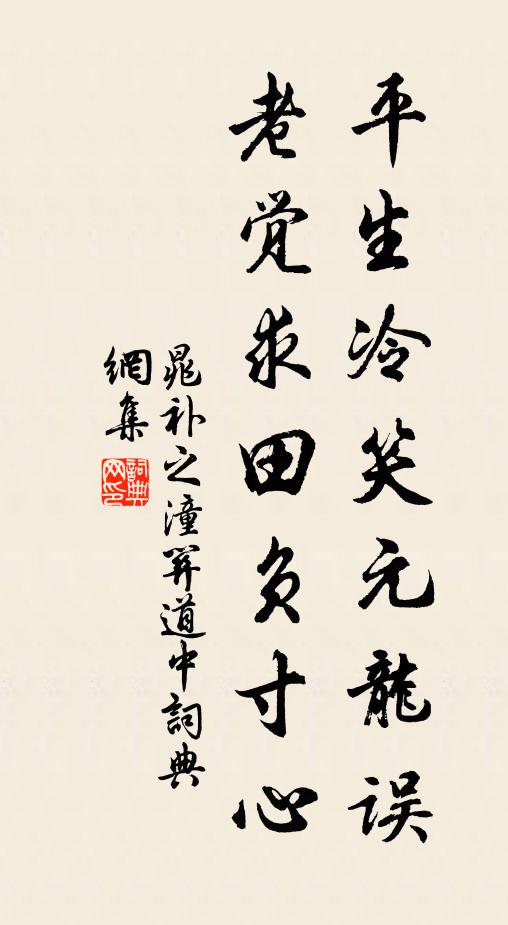 平生冷笑元龍误
老觉求田负寸心
晁补之潼关道中詞典
網集
詞典网印